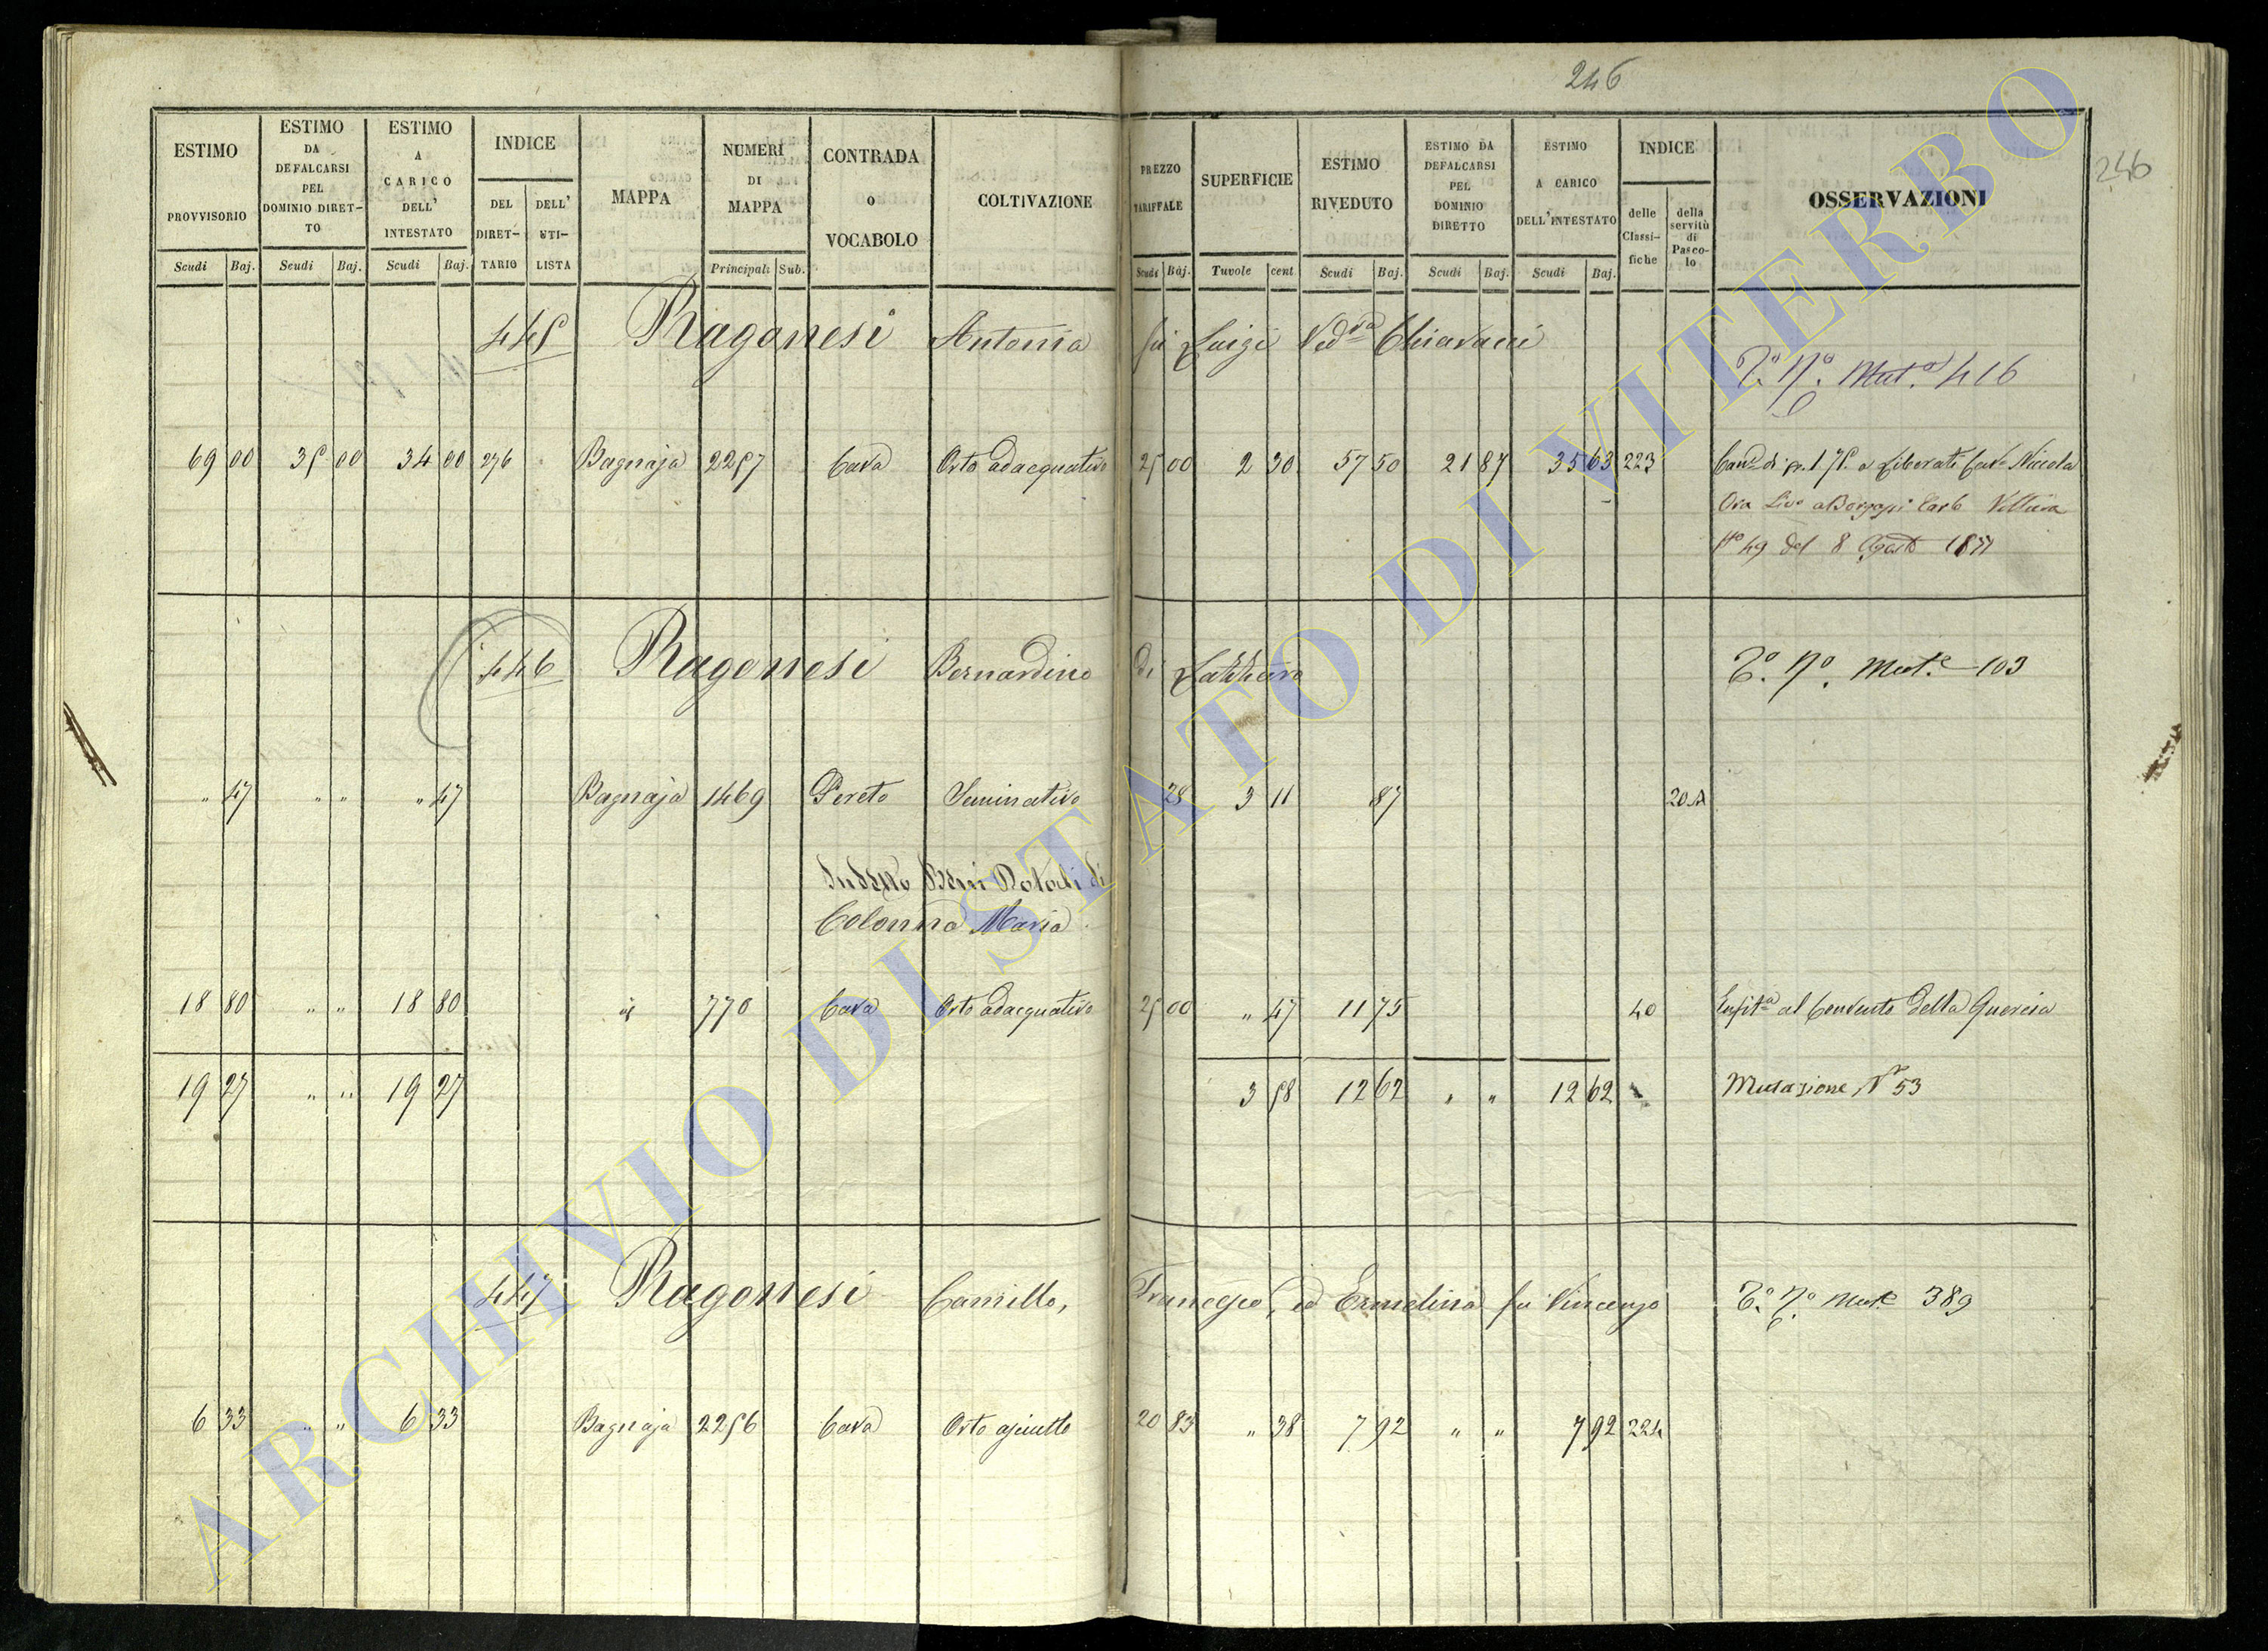 246
246
ESTIMO PROVVISORIO
ESTIMO DA DEFALCARSI PEL DOMINIO DIRET-TO
ESTIMO A CARICO DELL' INTESTATO
INDICE
DEL DIRET-TARIO
DELL' UTI-LISTA
MAPPA
NUMERI DI MAPPA
CONTRADA O VOCABOLO
COLTIVAZIONE
PREZZO TARIFFALE
SUPERFICIE
ESTIMO RIVEDUTO
ESTIMO DA DEFALCARSI PEL DOMINIO DIRETTO
ESTIMO A CARICO DELL'INTESTATO
INDICE
delle Classi-fiche
della servitù di Pasco-lo
OSSERVAZIONI
Scudi Baj. Scudi Baj. Scudi Baj. Principali Sub. Scudi Baj. Tavole cent Scudi Baj. Scudi Baj. Scudi Baj.
445 Ragonesi Antonia fu Luigi Ved.va Chiaravci
T.o N.o Mut.e 416
69 00 35 00 34 00 276 Bagnaja 2257 Cava Orto adacquativo 25 00 2 30 57 50 21 87 35 63 223 Can.e di sc. 1.75 a Liberati Nicola
Ora Liv.o a Carlo Voltura
N.o 49 del 8 Agosto 1877
446 Ragonesi Bernardino di Lazzaro T.o N.o Mut.e 103
" 47 " " " 47 Bagnaja 1469 Pereto Seminativo 28 3 11 87 20 A
Sudetto Beni Dotali di
Colonna Maria
18 80 " " 18 80 id 770 Cava Orto adacquativo 25 00 " 47 11 75 40 Enfit.a al Convento della Quercia
19 27 " " 19 27 3 58 12 62 " " 12 62 Mutazione N° 53
447 Ragonesi Camillo, Francesco, ed Ermelina fu Vincenzo T.o N.o Mut.e 389
6 33 " " 6 33 Bagnaja 2256 Cava Orto asciutto 20 83 " 38 7 92 " " 7 92 224
ARCHIVIO DI STATO DI VITERBO